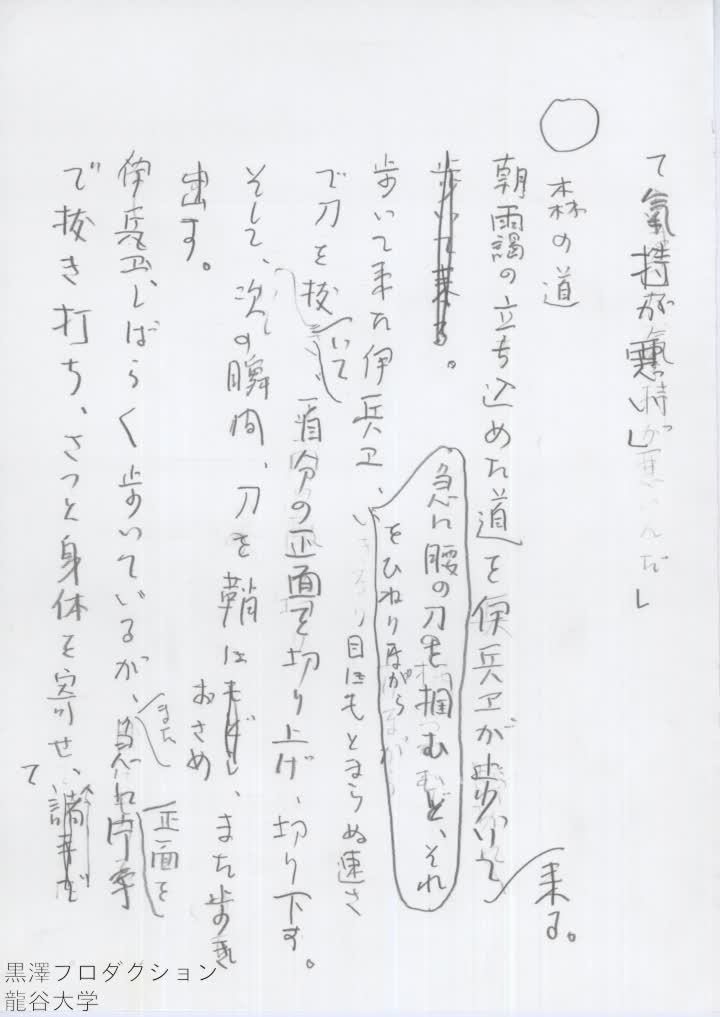 て気持が悪い」
○
森の道
朝靄の立ち込めた道を伊兵ヱが歩いて来る。
歩いて来る。
急に腰の刀を掴むと、それ
をひねりながら
歩いて来た伊兵ヱ、いきなり目にもとまらぬ速さ
で刀を抜いて
自分の正面を切り上げ、切り下す。
そして、次の瞬間、刀を鞘にもどし、また歩き
おさめ
出す。
伊兵ヱ、しばらく歩いているが、また急に
正面を
で抜き打ち、さっと身体を寄せ、
て
黒澤フロダクション
龍谷大学